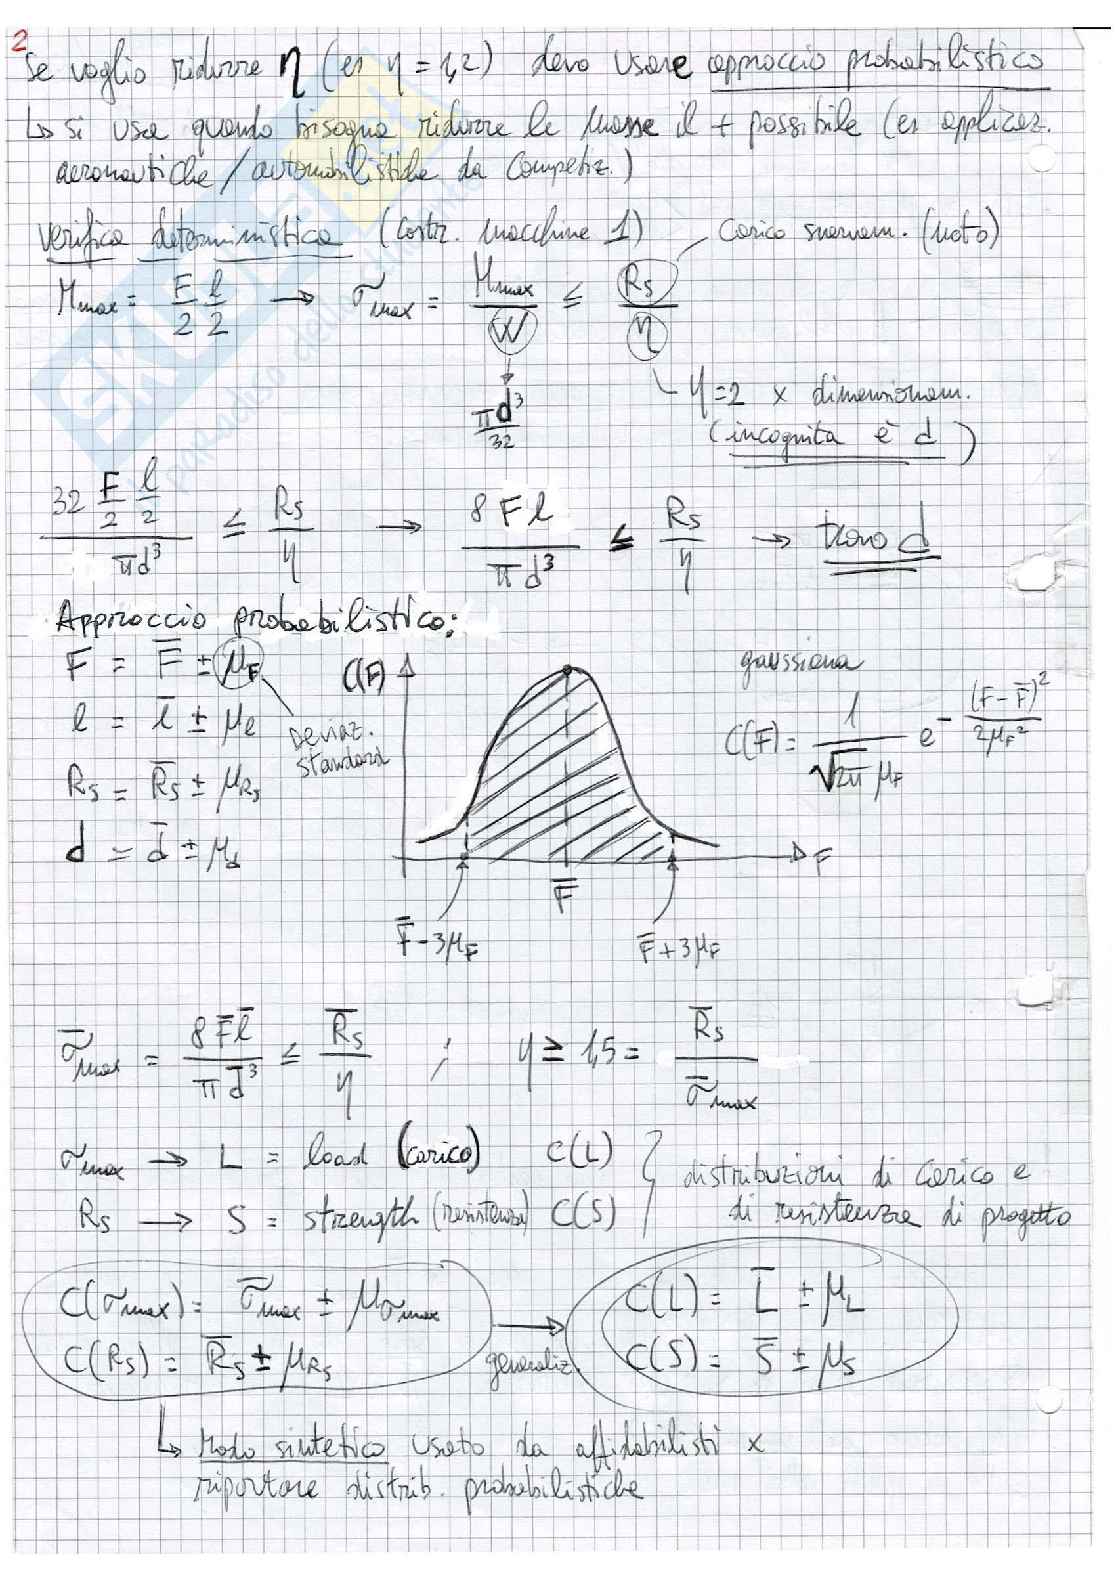 2
Se voglio ridurre η (es η = 1,2) devo usare approccio probabilistico
↳ si usa quando bisogna ridurre le masse il + possibile (es applicaz.
aeronautiche / automobilistiche da competiz.)
verifica deterministica (Costr. macchine 1)
carico snervam. (noto)
M_max = F/2 l/2 → σ_max = M_max/W ≤ Rs/η
πd³/32
η=2 x dimensionam.
(incognita è d)
32 F/2 l/2 / πd³ ≤ Rs/η → 8Fl/πd³ ≤ Rs/η → trovo d
Approccio probabilistico:
F = F̄ ± μ_F
l = l̄ ± μ_l
Rs = R̄s ± μ_Rs
d = d̄ ± μ_d
Deviaz. standard
C(F)
F
F̄
F̄-3μ_F
F̄+3μ_F
gaussiana
C(F) = 1/(√2π μ_F) e^-(F-F̄)²/2μ_F²
σ̄_max = 8F̄l̄/πd̄³ ≤ R̄s/η ; η ≥ 1,5 = R̄s/σ̄_max
σ_max → L = load (carico) C(L)
Rs → S = strength (resistenza) C(S)
distribuzioni di carico e
di resistenza di progetto
C(σ_max) = σ̄_max ± μ_σmax
C(Rs) = R̄s ± μ_Rs
generaliz.
C(L) = L̄ ± μ_L
C(S) = S̄ ± μ_S
↳ Modo sintetico usato da affidabilisti x
riportare distrib. probabilistiche